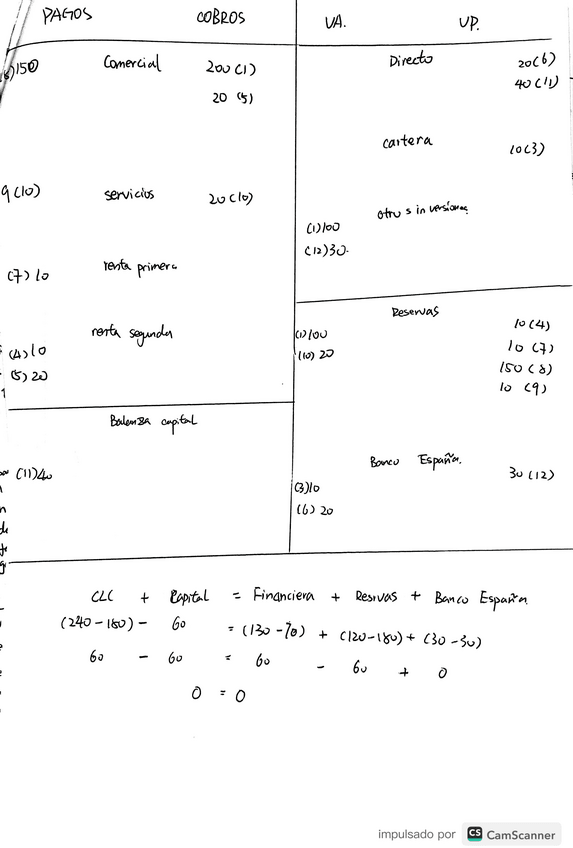 PAGOS COBROS VA. VP.
(8)150 Comercial 200 (1) Directo 20 (6)
20 (5) 40 (11)
cartera 10 (3)
9 (10) servicios 20 (10) otros inversiones
(1)100
(12)30.
(7) 10 renta primera
Reservas
renta segunda (1)100 10 (4)
(4)10 (10) 20 10 (7)
(5) 20 150 (8)
10 (9)
Balanza capital
Banco España. 30 (12)
(11)40 (3)10
(6) 20
CLC + Capital = Financiera + Resivas + Banco España
(240-180) - 60 = (130-70) + (120-180) + (30-30)
60 - 60 = 60 - 60 + 0
0 = 0
impulsado por CS CamScanner